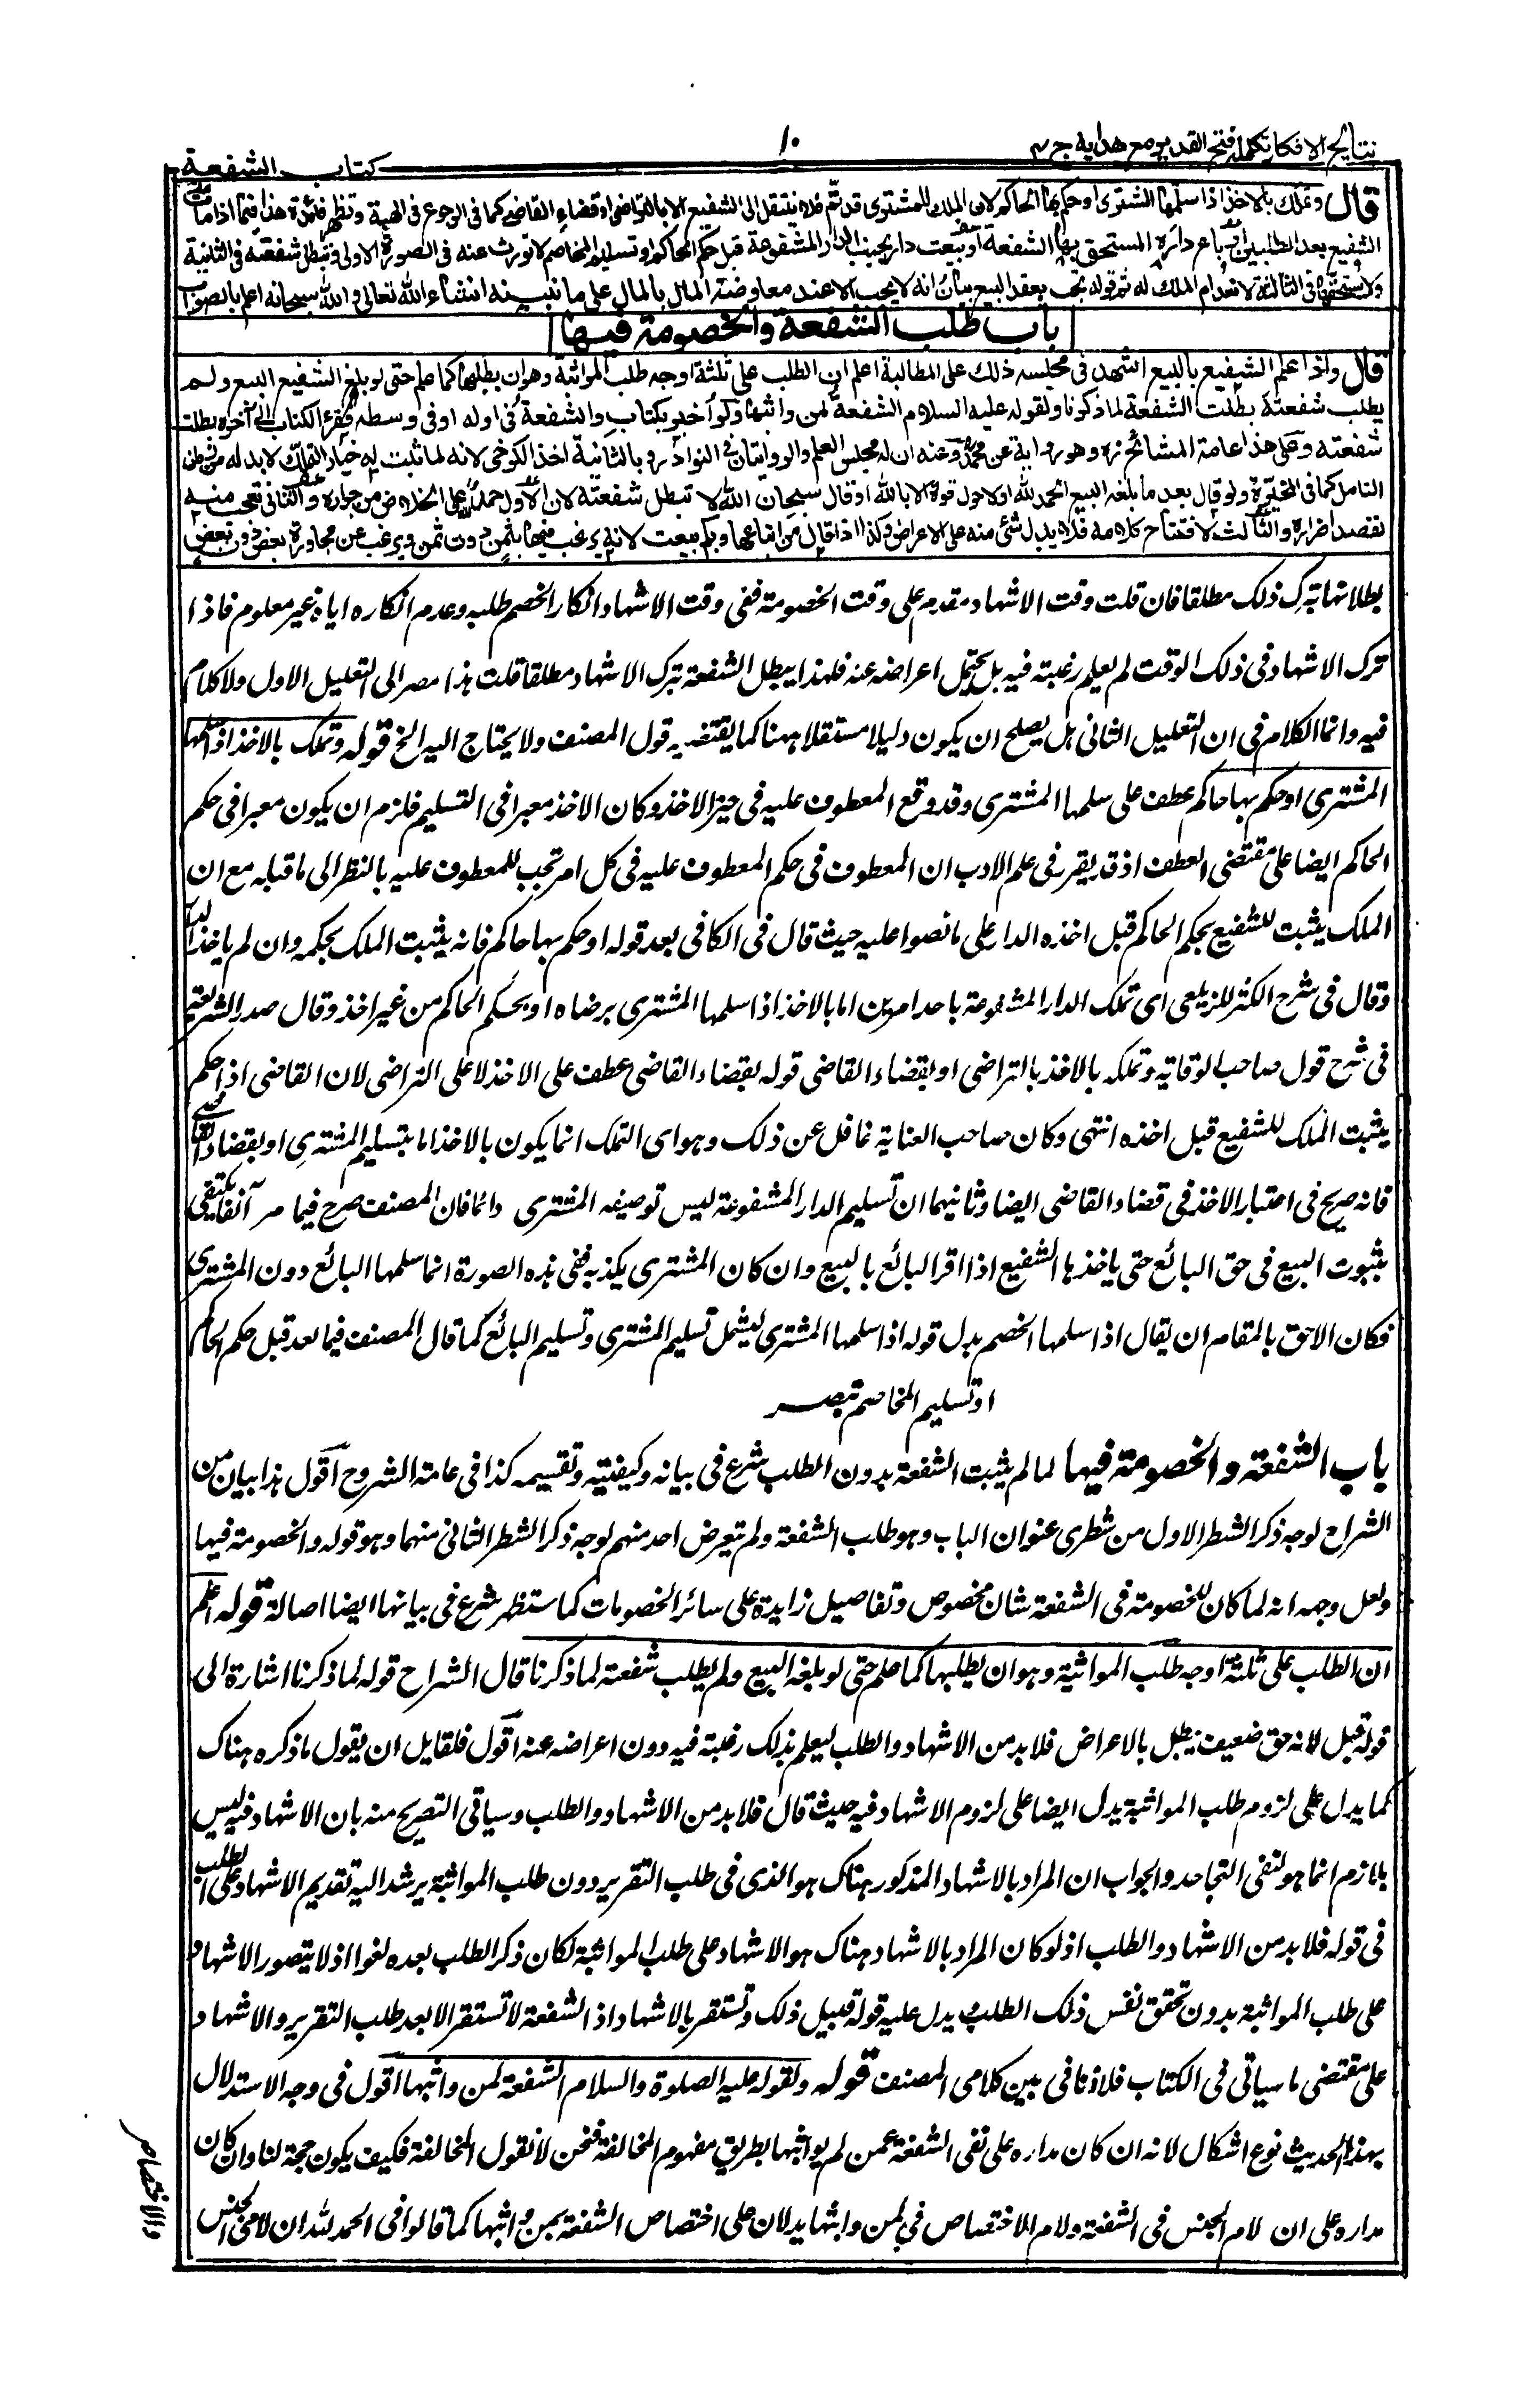 نتايج الافكار تكملة فتح القدير مع هدايه ج ٣
١٠
كتاب الشفعة
قال وتملك بالاخذ اذا سلمها المشترى او حكم بها الحاكم لان الملك للمشترى قد تم فلا ينتقل الى الشفيع الا بالتراضى او قضاء القاضى كما فى الرجوع فى الهبة وتظهر فائدة هذا فيما اذا مات
الشفيع بعد الطلبين او باع داره المستحق بها الشفعة او بيعت دار بجنب الدار المشفوعة قبل حكم الحاكم او تسليم المخاصم لا تورث عنه فى الصورة الاولى وتبطل شفعته فى الثانية
ولا يستحقها فى الثالثة لانعدام الملك له ثم قوله تجب بعقد البيع بيان انه لا يجب الا عند معاوضة المال بالمال على ما نبينه انشاء الله تعالى والله سبحانه اعلم بالصواب
باب طلب الشفعة والخصومة فيها
قال واذا علم الشفيع بالبيع اشهد فى مجلسه ذلك على المطالبة اعلم ان الطلب على ثلثة اوجه طلب المواثبة وهو ان يطلبها كما علم حتى لو بلغ الشفيع البيع ولم
يطلب شفعته بطلت الشفعة لما ذكرنا ولقوله عليه السلام الشفعة لمن واثبها ولو اخبر بكتاب والشفعة فى اوله او فى وسطه فقرء الكتاب الى آخره بطلت
شفعته وعلى هذا عامة المشائخ وهو رواية عن محمد وعنه ان له مجلس العلم والروايتان فى النوادر وبالثانية اخذ الكرخى لانه لما ثبت له خيار التملك لا بد له من زمان
التامل كما فى المخيرة ولو قال بعد ما بلغه البيع الحمد لله او لا حول ولا قوة الا بالله او قال سبحان الله لا تبطل شفعته لان الاول حمد على الخلاص من جواره والثانى تعجب منه
لقصد اضراره والثالث لافتتاح كلامه فلا يدل شئ منه على الاعراض وكذا اذا قال من ابتاعها وبكم بيعت لانه يرغب فيها بثمن دون ثمن ويرغب عن مجاورة بعض دون بعض
بطلانها بترك ذلك مطلقا فان قلت وقت الاشهاد مقدم على وقت الخصومة ففى وقت الاشهاد انكار الخصم طلبه وعدم انكاره اياه غير معلوم فاذا
ترك الاشهاد فى ذلك الوقت لم يعلم رغبته فيه بل يحتمل اعراضه عنه فلهذا يبطل الشفعة بترك الاشهاد مطلقا قلت هذا مصر الى التعليل الاول ولا كلام
فيه وانما الكلام فى ان التعليل الثانى هل يصلح ان يكون دليلا مستقلا ههنا كما يقتضيه قول المصنف ولا يحتاج اليه الخ قوله وتملك بالاخذ اذا سلمها
المشترى او حكم بها حاكم عطف على سلمها المشترى وقد وقع المعطوف عليه فى حيز الاخذ وكان الاخذ معبرا فى التسليم فلزم ان يكون معبرا فى حكم
الحاكم ايضا على مقتضى العطف اذ قد يقرر فى علم الادب ان المعطوف فى حكم المعطوف عليه فى كل امر تجب للمعطوف عليه بالنظر الى ما قبله مع ان
الملك يثبت للشفيع بحكم الحاكم قبل اخذه الدار على ما نصوا عليه حيث قال فى الكافى بعد قوله او حكم بها حاكم فانه يثبت الملك بحكمه وان لم ياخذ الدار
وقال فى شرح الكنز للزيلعى اى تملك الدار المشفوعة باحد امرين اما بالاخذ اذا سلمها المشترى برضاه او بحكم الحاكم من غير اخذ وقال صدر الشريعة
فى شرح قول صاحب الوقاية وتملكه بالاخذ بالتراضى او بقضاء القاضى قوله بقضاء القاضى عطف على الاخذ لا على التراضى لان القاضى اذا حكم
يثبت الملك للشفيع قبل اخذه انتهى وكان صاحب العناية غافل عن ذلك وهو اى التملك انما يكون بالاخذ اما بتسليم المشترى او بقضاء القاضى
فانه صريح فى اعتبار الاخذ فى قضاء القاضى ايضا وثانيهما ان تسليم الدار المشفوعة ليس توصيفه المشترى دائما فان المصنف صرح فيما مر آنفا يكتفى
بثبوت البيع فى حق البائع حتى ياخذها الشفيع اذا اقر البائع بالبيع وان كان المشترى يكذبه ففى هذه الصورة انما سلمها البائع دون المشترى
فكان الاحق بالمقام ان يقال اذا سلمها الخصم بدل قوله اذا سلمها المشترى ليشمل تسليم المشترى وتسليم البائع كما قال المصنف فيما بعد قبل حكم الحاكم
او تسليم المخاصم تبصر
باب الشفعة والخصومة فيها لما لم يثبت الشفعة بدون الطلب شرع فى بيانه وكيفيته وتقسيمه كذا فى عامة الشروح اقول هذا بيان من
الشراح لوجه ذكر الشطر الاول من شطرى عنوان الباب وهو طلب الشفعة ولم يتعرض احد منهم لوجه ذكر الشطر الثانى منهما وهو قوله والخصومة فيها
ولعل وجهه انه لما كان للخصومة فى الشفعة شان مخصوص وتفاصيل زايدة على سائر الخصومات كما ستظهر شرع فى بيانها ايضا اصالة قوله اعلم
ان الطلب على ثلثة اوجه طلب المواثبة وهو ان يطلبها كما علم حتى لو بلغه البيع ولم يطلب شفعته لما ذكرنا قال الشراح قوله لما ذكرنا اشارة الى
قوله قبل لانه حق ضعيف يبطل بالاعراض فلا بد من الاشهاد والطلب ليعلم بذلك رغبته فيه دون اعراضه عنه اقول فلقايل ان يقول ما ذكره هناك
كما يدل على لزوم طلب المواثبة يدل ايضا على لزوم الاشهاد فيه حيث قال فلا بد من الاشهاد والطلب وسياتى التصريح منه بان الاشهاد فيه ليس
بلازم انما هو لنفى التجاحد والجواب ان المراد بالاشهاد المذكور هناك هو الذى فى طلب التقرير دون طلب المواثبة يرشد اليه تقديم الاشهاد على الطلب
فى قوله فلا بد من الاشهاد والطلب اذ لو كان المراد بالاشهاد هناك هو الاشهاد على طلب المواثبة لكان ذكر الطلب بعده لغوا اذ لا يتصور الاشهاد
على طلب المواثبة بدون تحقق نفس ذلك الطلب يدل عليه قوله قبيل ذلك وتستقر بالاشهاد اذ الشفعة لا تستقر الا بعد طلب التقرير والاشهاد
على مقتضى ما سياتى فى الكتاب فلا تنافى بين كلامى المصنف قوله ولقوله عليه الصلوة والسلام الشفعة لمن واثبها اقول فى وجه الاستدلال
بهذا الحديث نوع اشكال لانه ان كان مداره على نفى الشفعة عمن لم يواثبها بطريق مفهوم المخالفة فنحن لا نقول المخالفة فكيف يكون حجة لنا وان كان
مداره على ان لام الجنس فى الشفعة ولام الاختصاص فى لمن واثبها يدلان على اختصاص الشفعة بمن واثبها كما قالوا فى الحمد لله ان لامى الجنس
والاختصاص